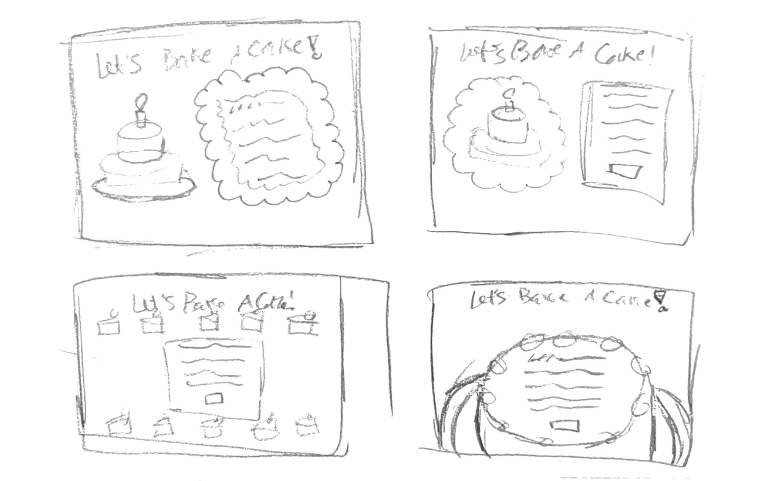 Let's Bake A Cake!
Let's Bake A Cake!
Let's Bake A Cake!
Let's Bake A Cake!